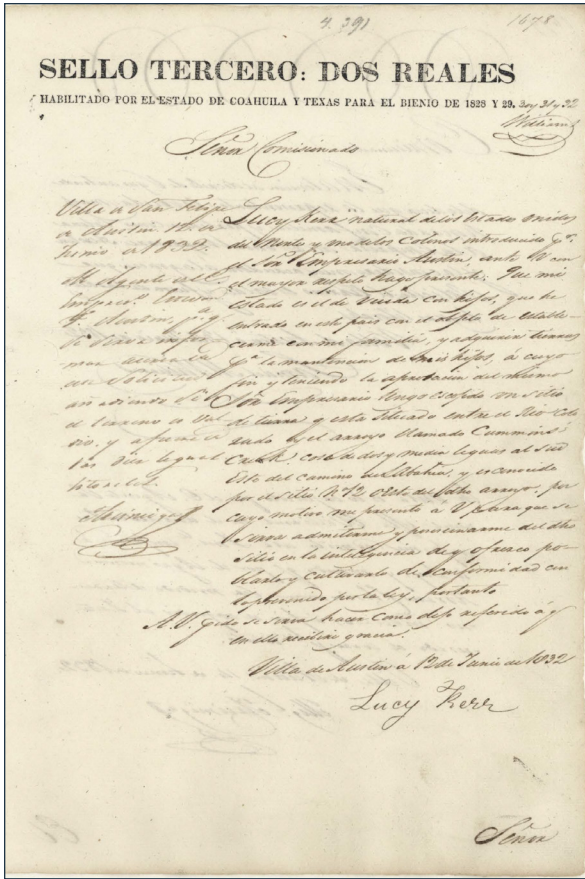 4. 391
1678
SELLO TERCERO: DOS REALES
HABILITADO POR EL ESTADO DE COAHUILA Y TEXAS PARA EL BIENIO DE 1828 Y 29. 30 y 31 y 32
Williams
Señor Comisionado
Villa de San Felipe
de Austin 12 de
Junio de 1832.
Al Agente del
Empres.º Estevan
F. Austin, p.ª q
se sirva infor
mar acerca de
esta solicitud
añadiendo si
el terreno es val
dio, y a quien
las dies legual
litorales.
Lucy Kerr natural de los Estados unidos
del Norte y uno de los Colonos introducido p.r
el Señ.r Empresario Austin, ante V. con
el mayor respeto hago presente: Que mi
estado es el de Viuda con hijos, que he
entrado en este pais con el objeto de estable-
cerme con mi familia, y adquirir tierras
p.ª la mantencion de mis hijos, á cuyo
fin y teniendo la aprobacion del mismo
Señ.r Empresario tengo escojido un sitio
de tierra y esta situado entre el Rio Colo
rado y el arroyo llamado Cummins'
Creek cosa de dos y media leguas al Sud
Este del camino de Bahia, y es conocido
por el Sitio N. 12 Oeste del dho arroyo, por
cuyo motivo me presento a V. para que se
sirva admitirme y posesionarme del dho
sitio en la inteligencia de q ofresco po-
blarlo y cultivarlo de conformidad con
lo prevenido por la ley, portanto
A.V. pido se sirva hacer como dejo referido á q
en ello recibire gracia.
Villa de Austin á 12 de Junio de 1832
Lucy Kerr
Señor